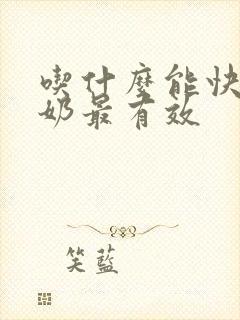 喫什麼能快
奶最有效
笑藍